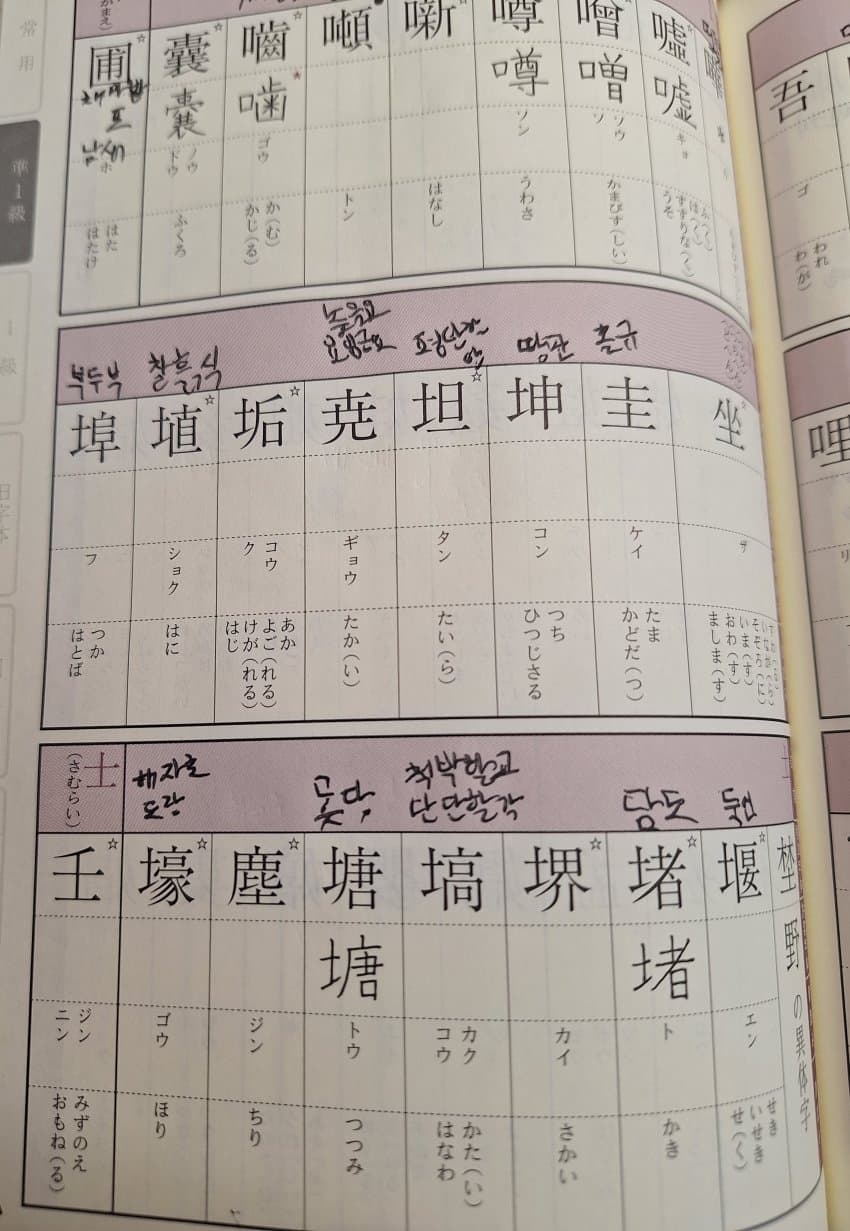 常用
準1級
1級
嘘
嘘
キョ
うそ
噌
噌
ソウ
ソ
かまびす(しい)
噂
噂
ソン
うわさ
噺
はなし
噸
トン
嚙
噛
ゴウ
か(む)
かじ(る)
囊
嚢
ノウ
ドウ
ふくろ
圃
채마밭
포
남새
ホ
はた
はたけ
坐
ザ
すわ(る)
いなが(ら)
そぞろ(に)
いま(す)
おわ(す)
ましま(す)
홀규
圭
ケイ
たま
かどだ(つ)
땅곤
坤
コン
つち
ひつじさる
평탄할
坦
タン
たい(ら)
높을요
요임금요
尭
ギョウ
たか(い)
垢
コウ
ク
あか
よご(れる)
けが(れる)
はじ
찰흙식
埴
ショク
はに
부두부
埠
フ
つか
はとば
埜 野の異体字
둑언
堰
エン
せき
いせき
せ(く)
담도
堵
堵
ト
かき
堺
カイ
さかい
척박할교
단단할각
塙
カク
コウ
かた(い)
はなわ
못당
塘
塘
トウ
つつみ
塵
ジン
ちり
해자호
도랑
壕
ゴウ
ほり
士
(さむらい)
壬
ジン
ニン
みずのえ
おもね(る)
吾
ゴ
われ
わ(が)
哩